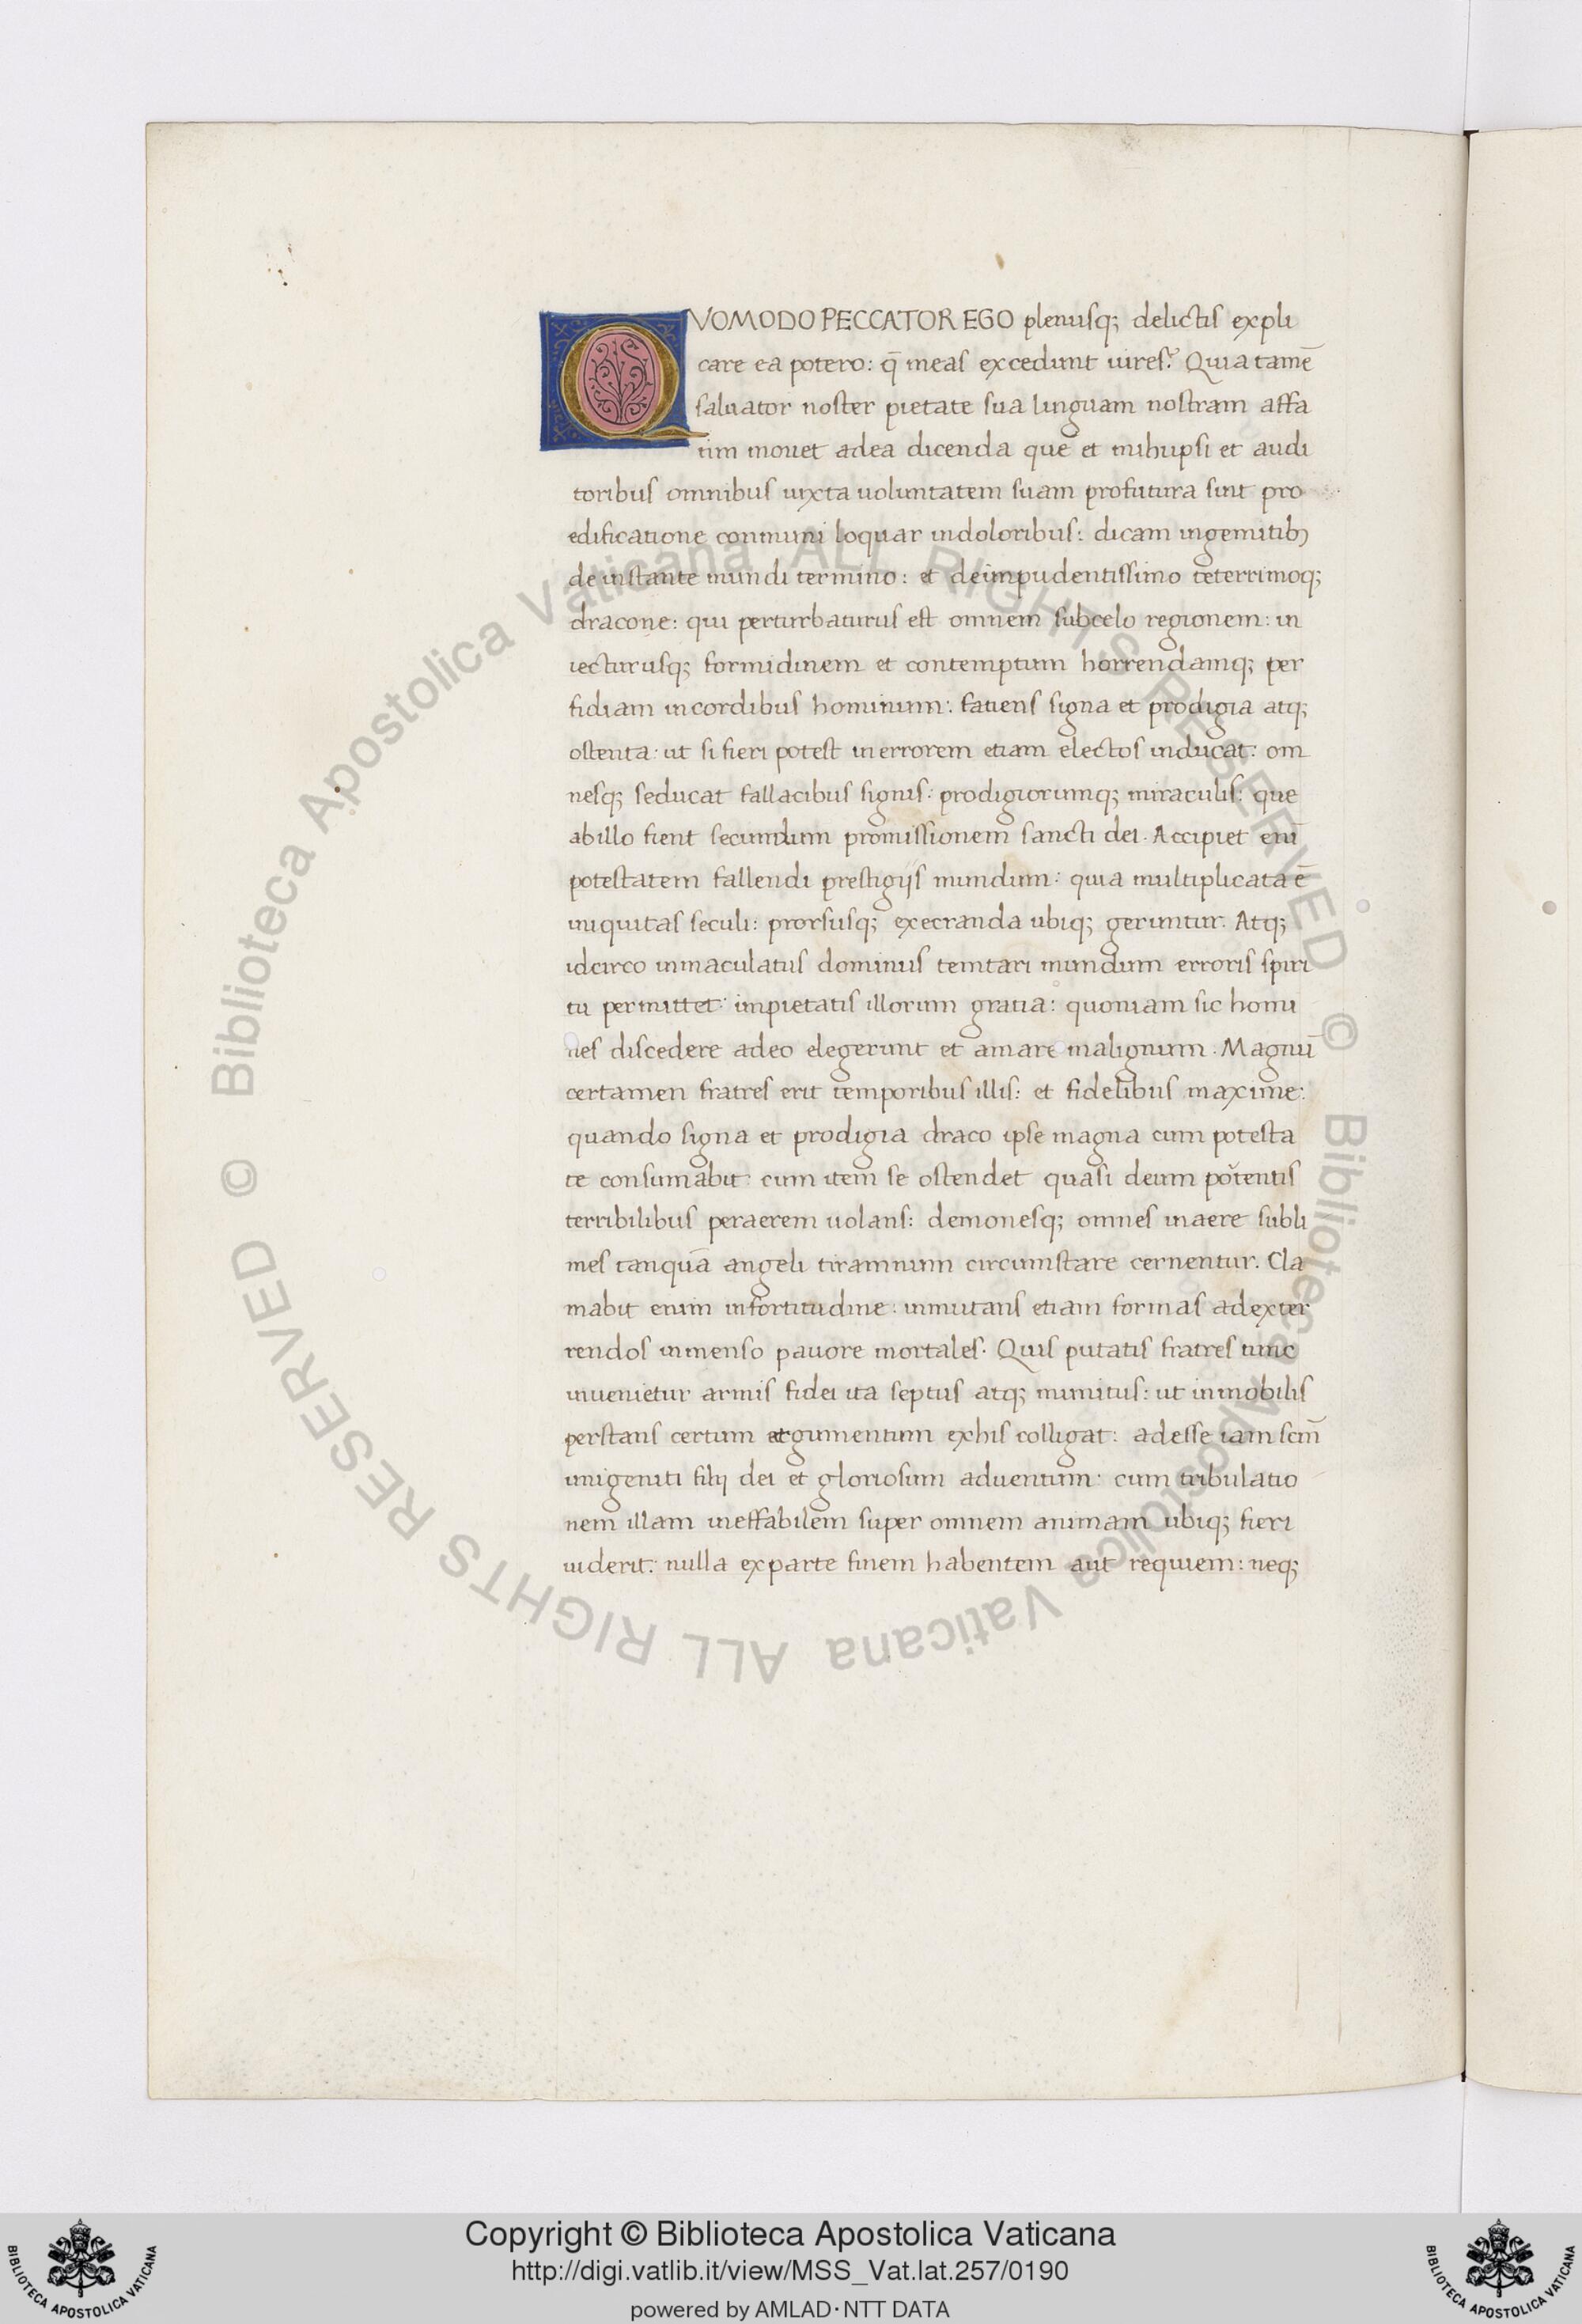 QVOMODO PECCATOR EGO plenusq; delictis expli
care ea potero: q̄ meas excedunt uires? Quia tamē
saluator noster pietate sua linguam nostram affa
tim mouet adea dicenda que et mihupsi et audi
toribus omnibus iuxta uoluntatem suam profutura sint pro
edificatione conmuni loquar indoloribus: dicam ingemitibȝ
de instante mundi termino: et deimpudentissimo teterrimoq;
dracone: qui perturbaturus est omnem subcelo regionem: in
iecturusq; formidinem et contemptum horrendamq; per
fidiam incordibus hominum: fatiens signa et prodigia atq;
ostenta: ut si fieri potest inerrorem etiam electos inducat: om
nesq; seducat fallacibus signis: prodigiorumq; miraculis: que
abillo fient secundum promissionem sancti dei. Accipiet enī
potestatem fallendi prestigijs mundum: quia multiplicata ē
iniquitas seculi: prorsusq; execranda ubiq; geruntur. Atq;
idcirco inmaculatus dominus temtari mundum erroris spiri
tu permittet: impietatis illorum gratia: quoniam sic homi
nes discedere adeo elegerunt et amare malignum. Magnū
certamen fratres erit temporibus illis: et fidelibus maxime:
quando signa et prodigia draco ipse magna cum potesta
te consumabit: cum item se ostendet quasi deum portentis
terribilibus peraerem uolans: demonesq; omnes inaere subli
mes tanquā angeli tirannum circumstare cernentur. Cla
mabit enim infortitudine: inmutans etiam formas adexter
rendos inmenso pauore mortales. Quis putatis fratres tunc
inuenietur armis fidei ita septus atq; munitus: ut inmobilis
perstans certum argumentum exhis colligat: adesse iam scm̄
unigeniti filij dei et gloriosum aduentum: cum tribulatio
nem illam ineffabilem super omnem animam ubiq; fieri
uiderit: nulla exparte finem habentem aut requiem: neq;
© Biblioteca Apostolica Vaticana ALL RIGHTS RESERVED © Biblioteca Apostolica Vaticana ALL RIGHTS RESERVED
Copyright © Biblioteca Apostolica Vaticana
http://digi.vatlib.it/view/MSS_Vat.lat.257/0190
powered by AMLAD·NTT DATA
BIBLIOTECA APOSTOLICA VATICANA
BIBLIOTECA APOSTOLICA VATICANA